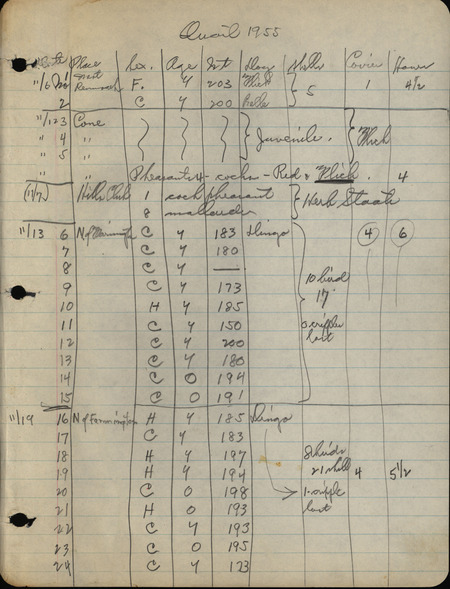 Quail 1955
Date Place Sex. Age Wt Dog Shells Covies Hours
11/6 1 F. Y 203 Mich 5 1 4 1/2
2 C Y 200 Belle
11/12 3 Cone Juvenile. Mich
" 4 "
" 5 "
" Pheasants 4 cocks - Red & Mich. 4
(11/7) Hills Club 1 cock pheasant Herb Staats
8 mallards
11/13 6 N of Farmington C Y 183 Dingo 4 6
7 C Y 180
8 C Y —
9 C Y 173 10 bird
10 H Y 185 17
11 C Y 150 0 cripples
12 C Y 200 lost
13 C Y 180
14 C O 194
15 C O 191
11/19 16 N of Farmington H Y 185 Dingo
17 C Y 183
18 H Y 197 birds
19 H Y 194 21 shell 4 5 1/2
20 C O 198 1 cripple
21 H O 193 lost
22 C Y 193
23 C O 195
24 C Y 173